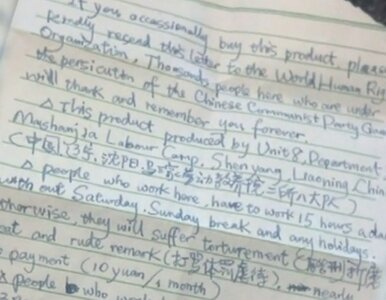 If you occassionally buy this product, please
kindly resend this letter to the World Human Rig
Organization. Thousands people here who are under
the persicution of the Chinese Communist Party Gov
will thank and remember you forever.
△ This product produced by Unit 8, Department
Mashanjia Labour Camp, Shen yang, Liaoning, Chin
(中国, 辽宁, 沈阳, 马三家劳动教养院二所八大队)
△ people who work here, have to work 15 hours a day
with out Saturday, Sunday break and any holidays.
therwise, they will suffer torturement (酷刑折磨
eat and rude remark (打骂体罚虐待), nearly
payment (10 yuan / 1 month)
people who wo